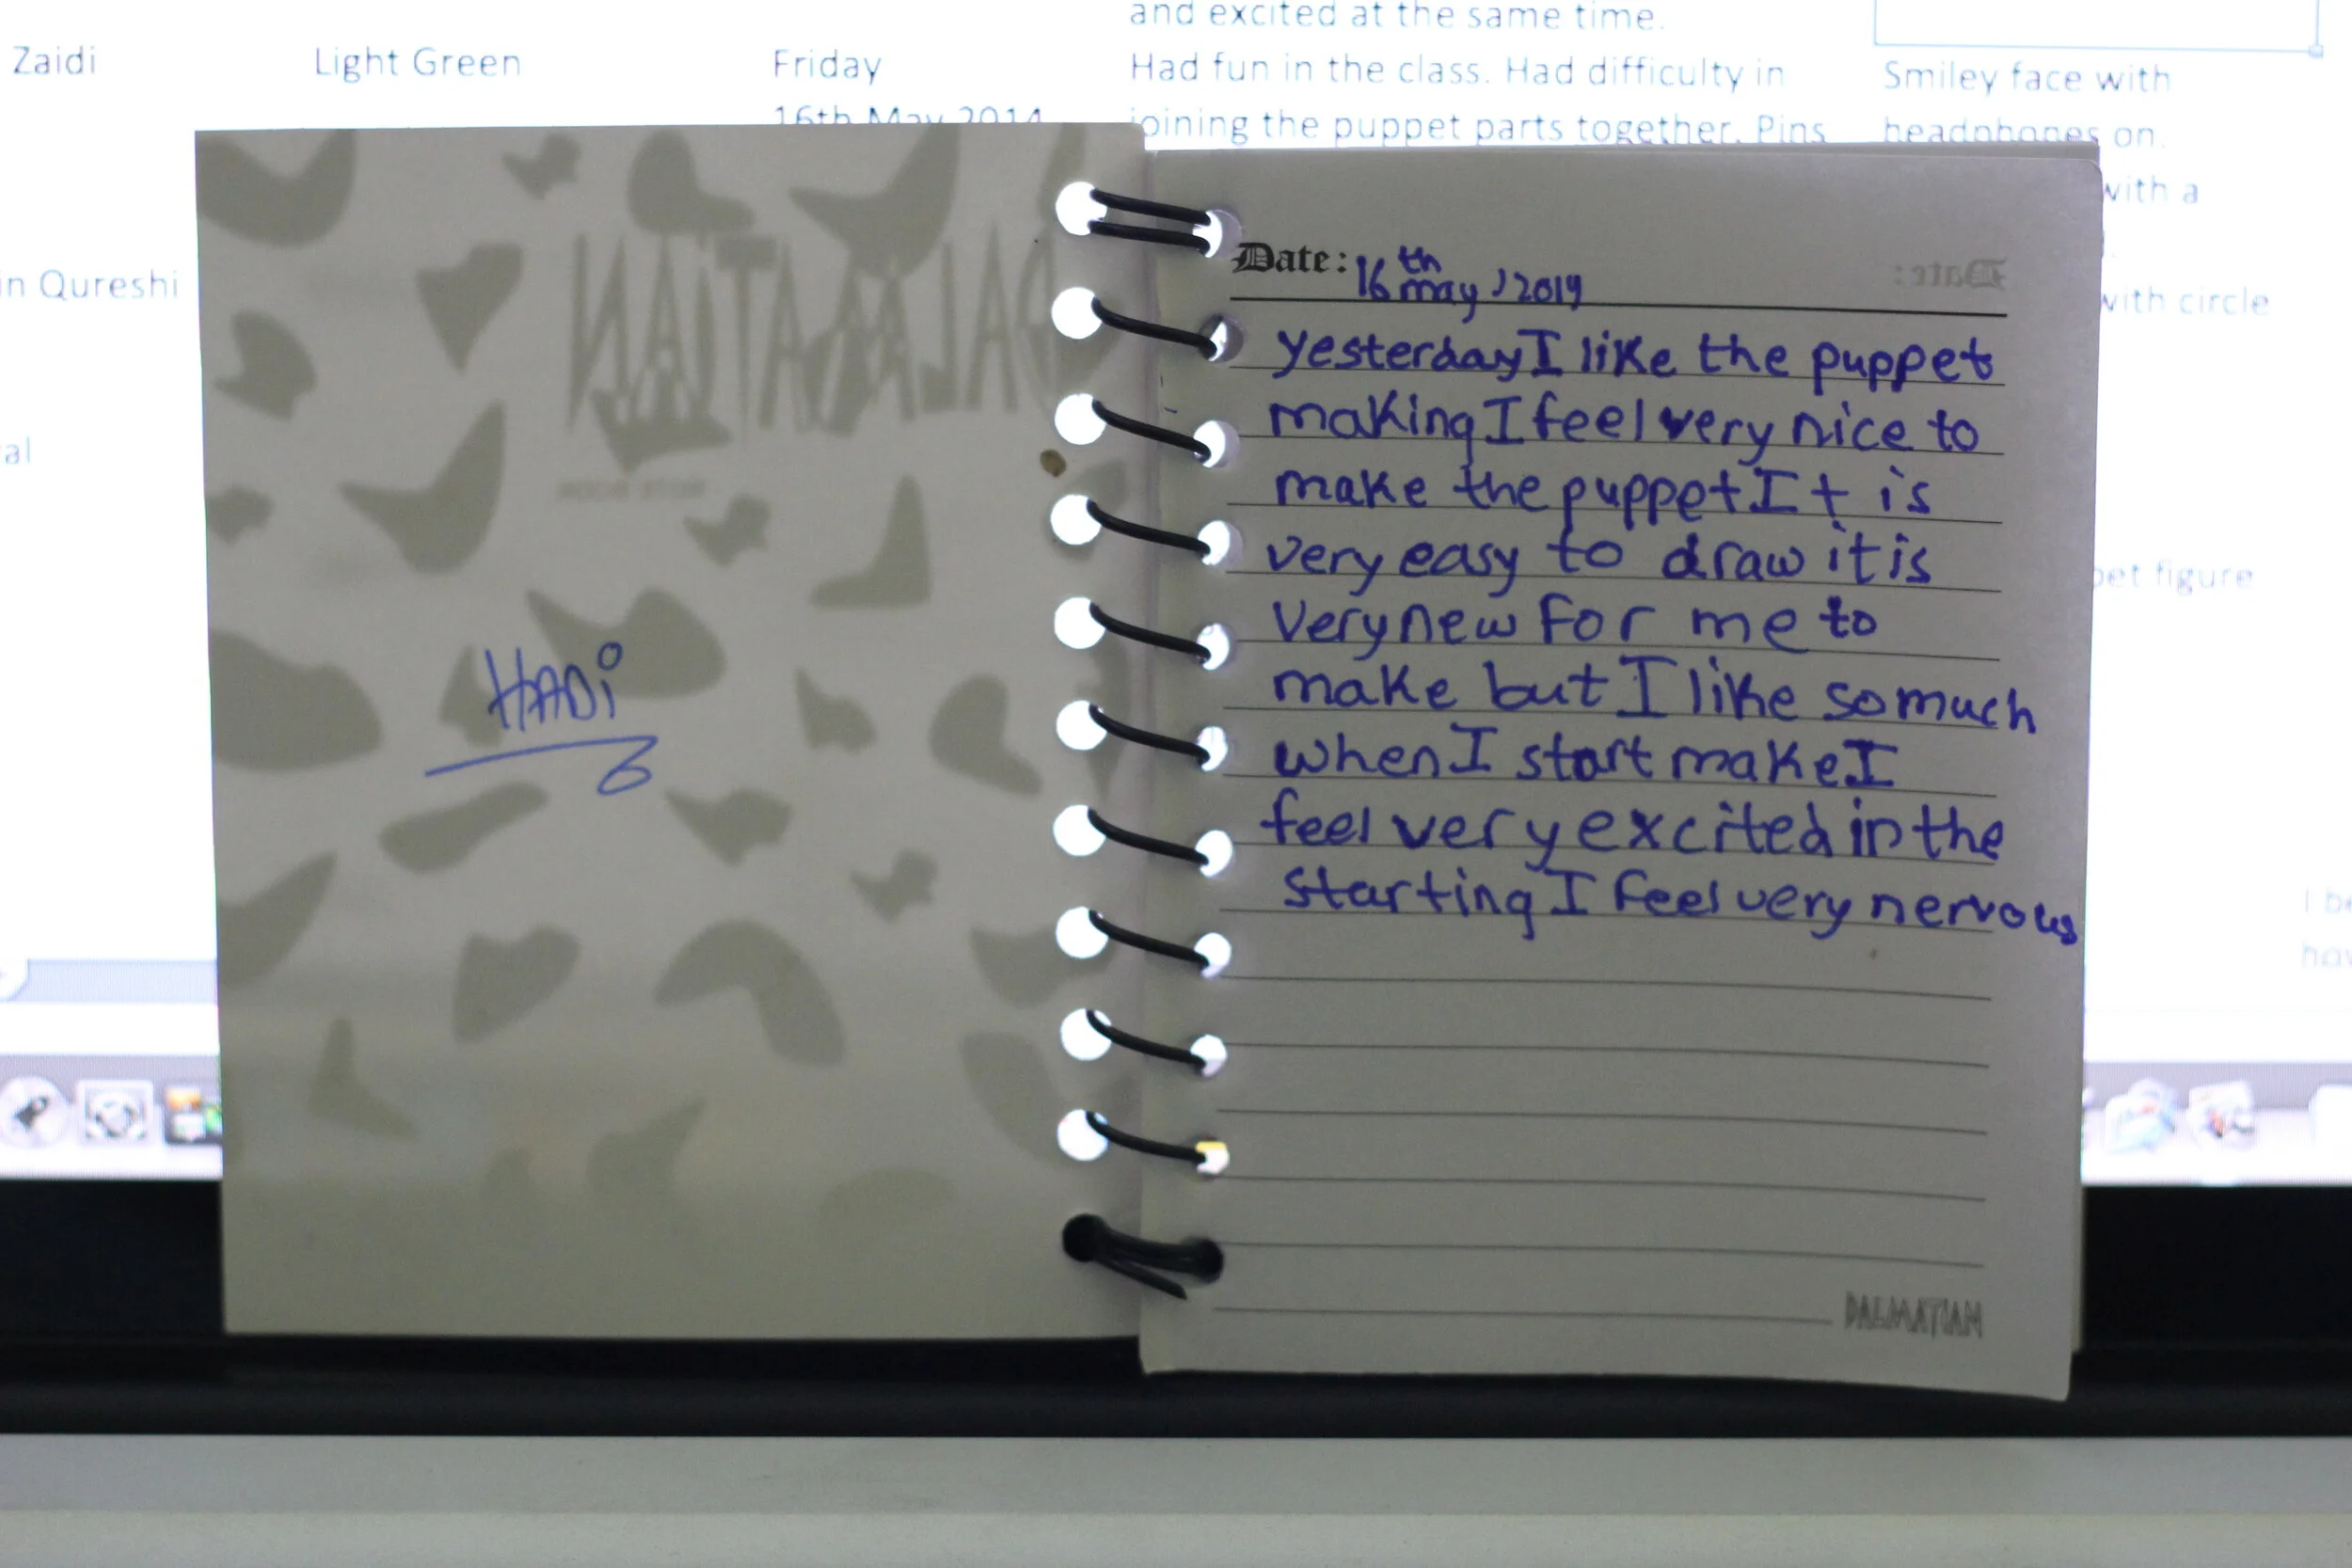 and excited at the same time.
Zaidi
Light Green
Friday
Had fun in the class. Had difficulty in
Smiley face with
16th May 2014
joining the puppet parts together. Pins
headphones on.
with a
in Qureshi
with circle
al
figure
DALMATIAN
HADi
Date: 16th may, 2014
yesterday I like the puppet
making I feel very nice to
make the puppet It is
very easy to draw it is
very new for me to
make but I like so much
when I start make I
feel very excited in the
starting I feel very nervous
DALMATIAN